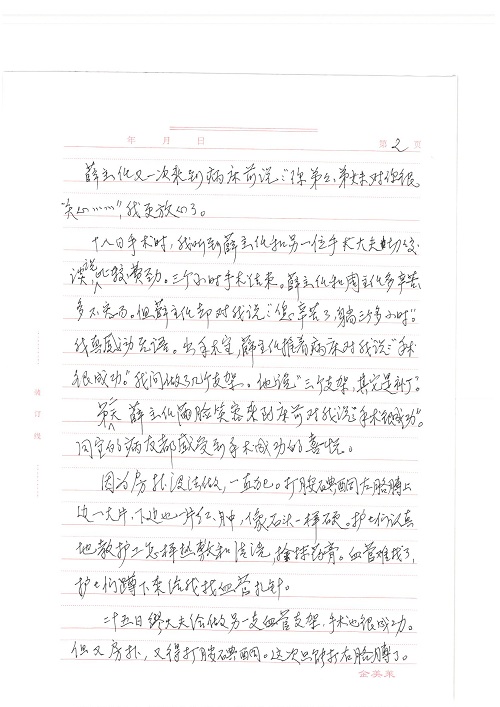 年 月 日
第 2 页
薛主任又一次来到病床前说:“你弟弟、弟妹对你很
关心……”,我更放心了。
十八日手术时,我听到薛主任和另一位手术大夫
谈说比较费劲。三个小时手术结束。薛主任和周主任多辛苦
多不容易。但薛主任却对我说:“您辛苦了,躺三个多小时”。
我真感动无语。出手术室,薛主任推着病床对我说:“手术
很成功。”我问做了几个支架。他说:“三个支架,其它是补丁”。
第二天 薛主任满脸笑容来到床前对我说:“手术很成功”。
同室的病友都感受到手术成功的喜悦。
因为房扑没法做,一直 。打胺碘酮左胳膊上
这一大片,下边也一片红、肿,像石头一样硬。护士们认真
地教护工怎样热敷和清洗,擦抹药膏。血管难找了,
护士们蹲下来给我找血管扎针。
二十五日 大夫给做另一支血管支架,手术也很成功。
但又房扑,又得打胺碘酮。这次只能打右胳膊了。
装 订 线
金英来